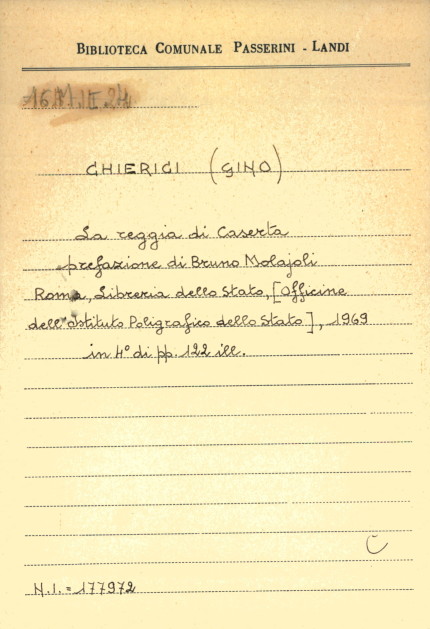 BIBLIOTECA COMUNALE PASSERINI - LANDI
16.M.II.24
CHIERICI (GINO)
La reggia di Caserta
prefazione di Bruno Molajoli
Roma, Libreria dello Stato, [Officine
dell'Istituto Poligrafico dello Stato], 1969
in 4° di pp. 122 ill.
C
N.I. = 177972